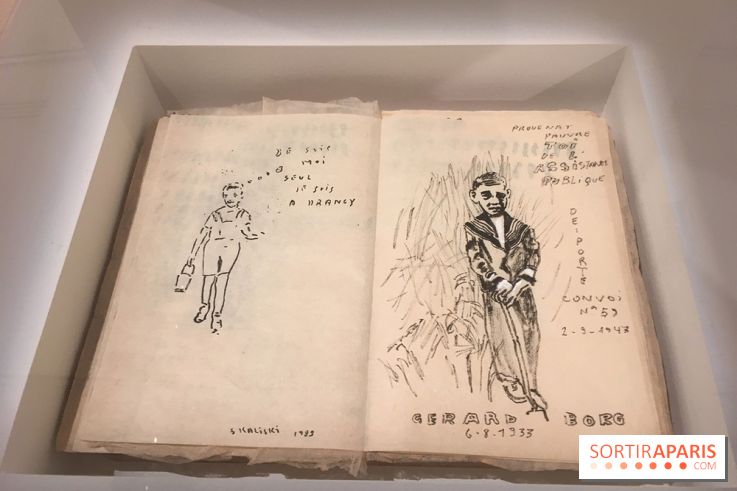 JE SUIS
MOI
SEUL
JE SUIS
A DRANCY
S KALISKI 1989
PROVENAT
PAUVRE
TOI
DE L'
ASSISTANCE
PUBLIQUE
DEPORTE
CONVOI
N° 59
2-9-1943
GERARD BORG
6-8-1933
SORTIRAPARIS
.COM